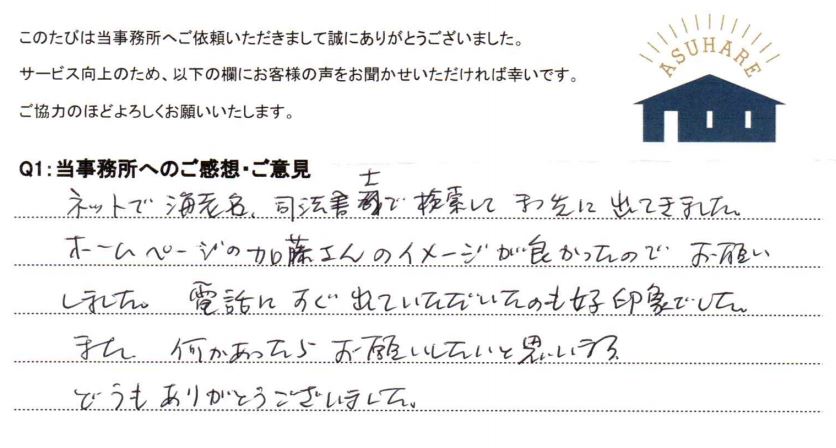 このたびは当事務所へご依頼いただきまして誠にありがとうございました。
サービス向上のため、以下の欄にお客様の声をお聞かせいただければ幸いです。
ご協力のほどよろしくお願いいたします。
ASUHARE
Q1：当事務所へのご感想・ご意見
ネットで 海老名、司法書士で 検索して まっ先に 出てきました。
ホームページの加藤さんのイメージが良かったので お願い
しました。 電話に すぐ 出ていただいたのも好印象でした。
また 何かあったら お願いしたいと思います。
どうもありがとうございました。